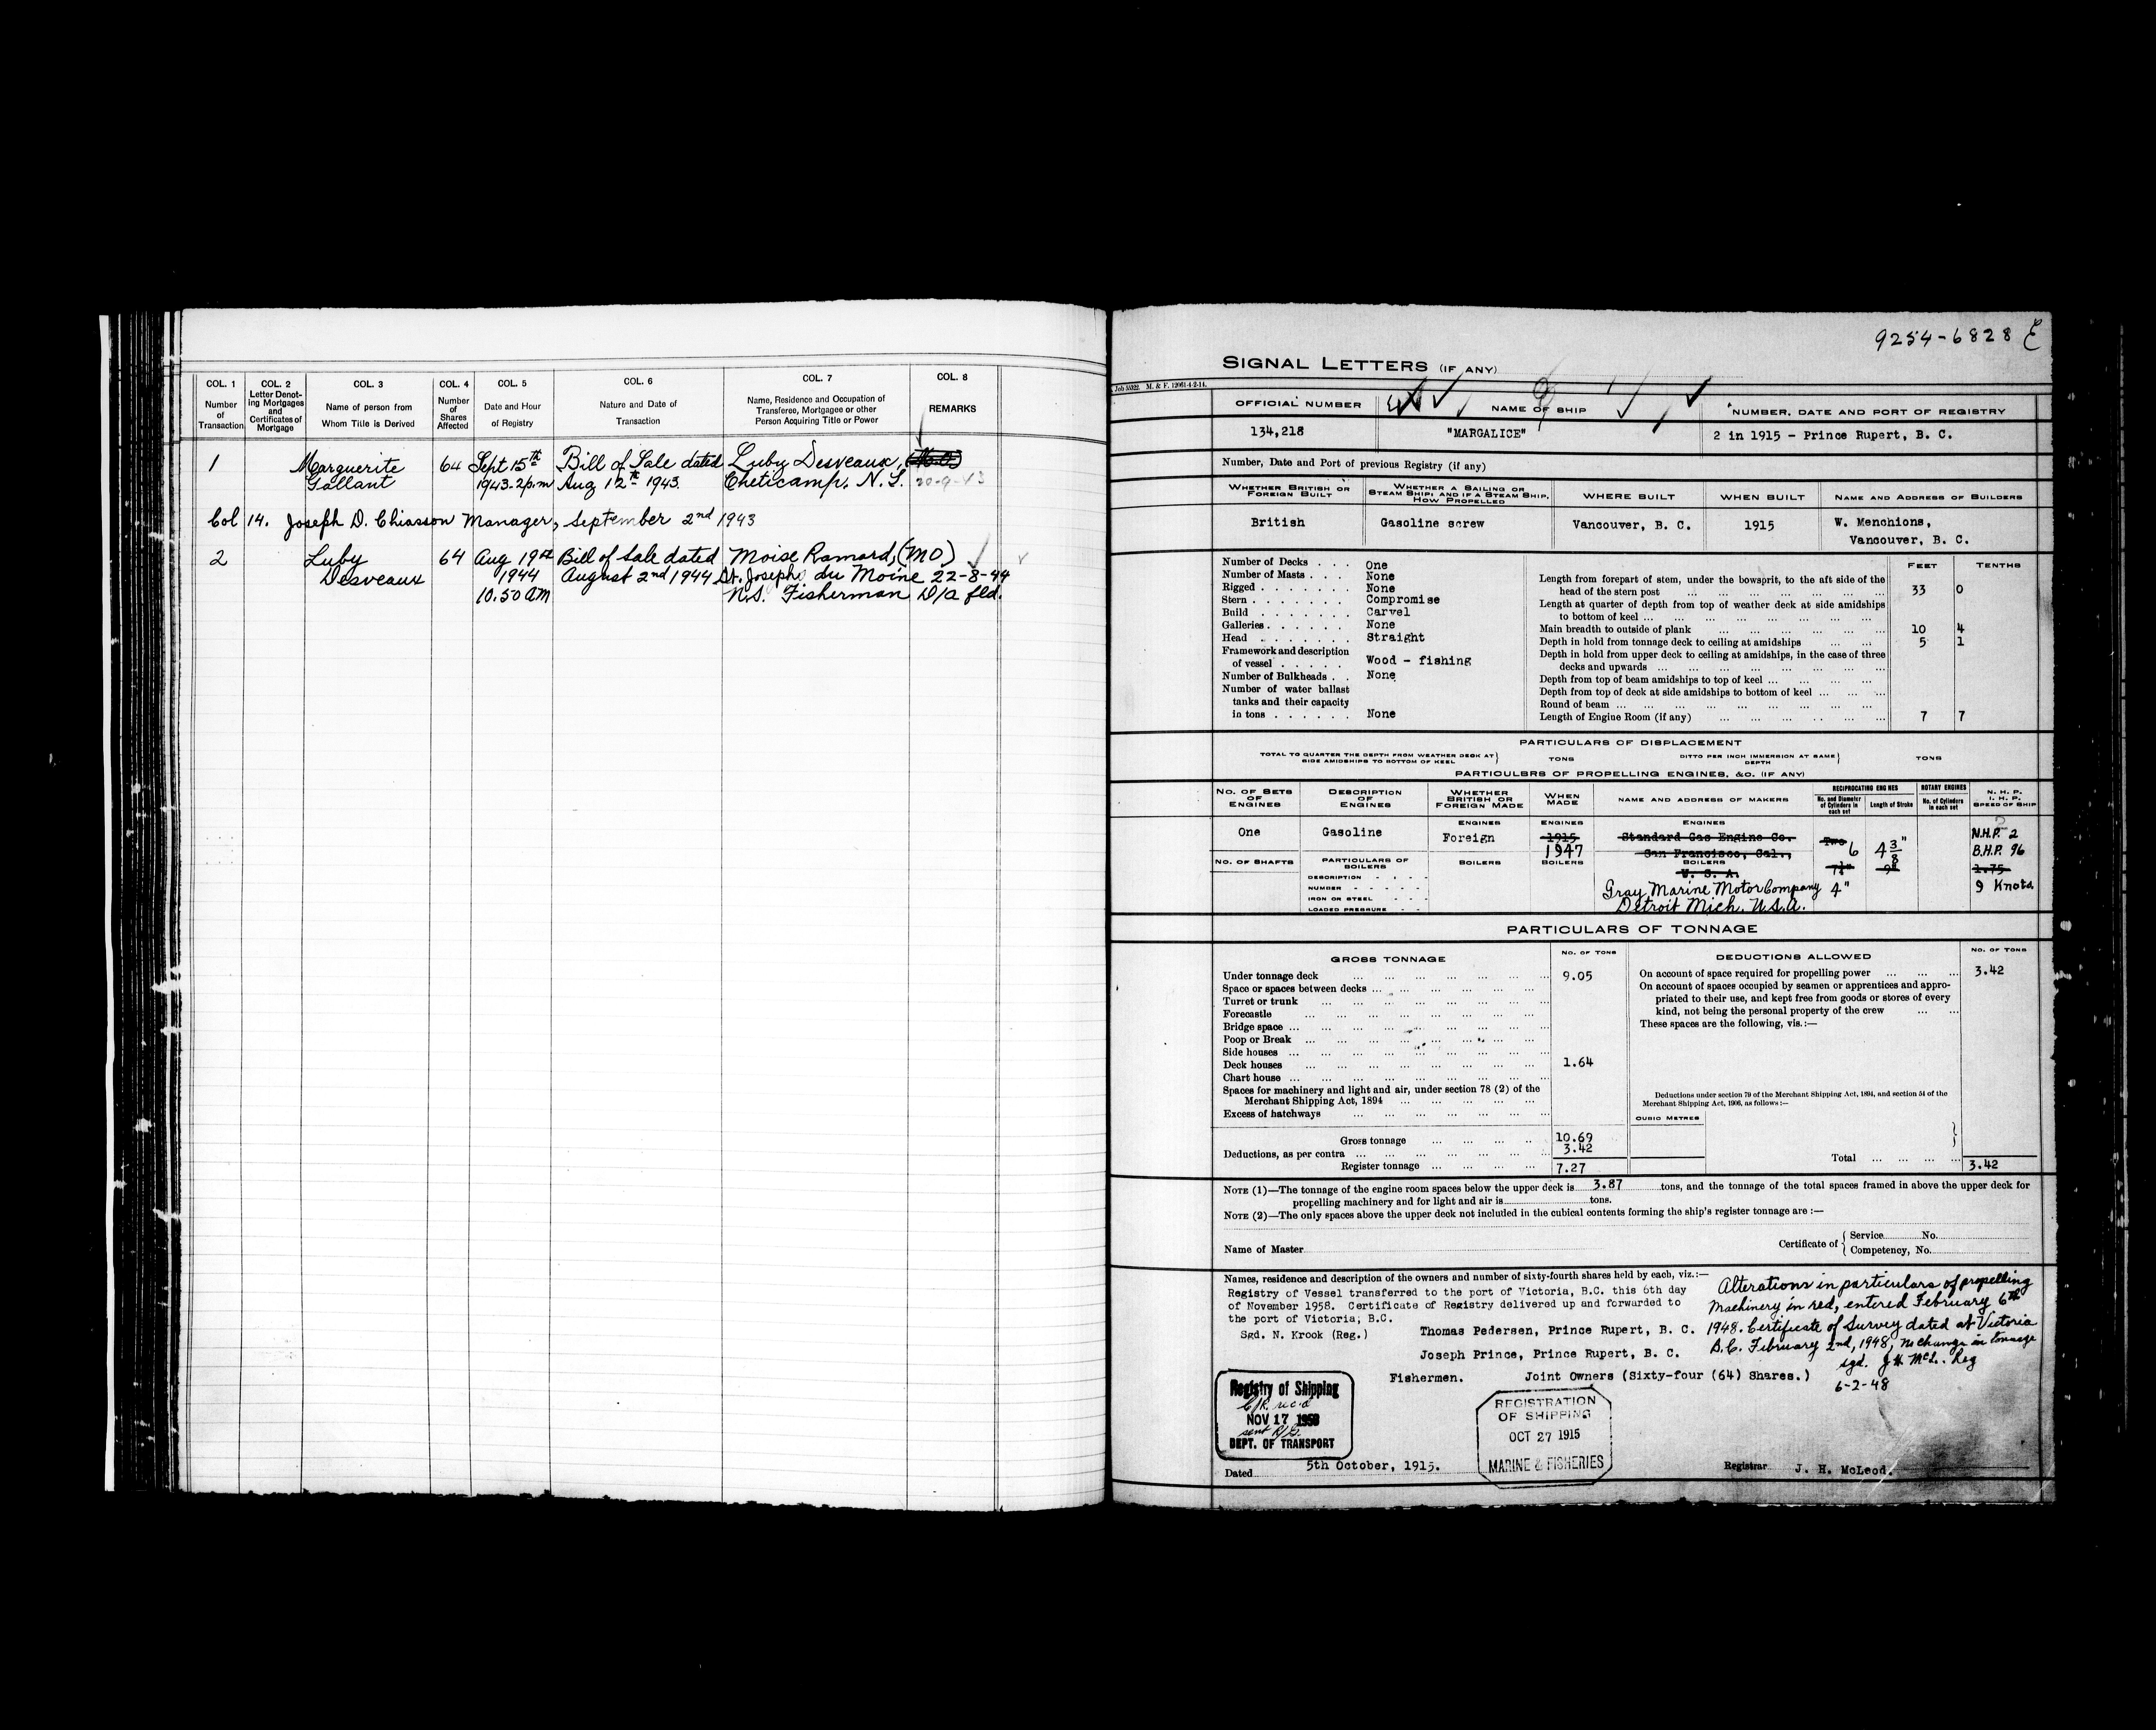 COL. 1 COL. 2 COL. 3 COL. 4 COL. 5 COL. 6 COL. 7 COL. 8
Number of Transaction
Letter Denoting Mortgages and Certificates of Mortgage
Name of person from Whom Title is Derived
Number of Shares Affected
Date and Hour of Registry
Nature and Date of Transaction
Name, Residence and Occupation of Transferee, Mortgagee or other Person Acquiring Title or Power
REMARKS
1 Marguerite 64 Sept 15th Bill of Sale dated Luby Desveaux,
Gallant 1943-2p.m Aug 12th 1943. Cheticamp. N.S.
Col 14. Joseph D. Chiasson Manager, September 2nd 1943
2 Luby 64 Aug 19th Bill of Sale dated Moise Ramard, (MO)
Desveaux 1944 August 2nd 1944 St. Joseph du Moine 22-8-44
10.50 AM N.S. Fisherman D/a fld.
9254-6828 E
SIGNAL LETTERS (IF ANY)
Job 35322. M. & F. 12061-4-2-14.
OFFICIAL NUMBER NAME OF SHIP NUMBER, DATE AND PORT OF REGISTRY
134,218 "MARGALICE" 2 in 1915 - Prince Rupert, B. C.
Number, Date and Port of previous Registry (if any)
WHETHER BRITISH OR FOREIGN BUILT
WHETHER A SAILING OR STEAM SHIP; AND IF A STEAM SHIP, HOW PROPELLED
WHERE BUILT WHEN BUILT NAME AND ADDRESS OF BUILDERS
British Gasoline screw Vancouver, B. C. 1915 W. Menchions,
Vancouver, B. C.
FEET TENTHS
Number of Decks . . . One
Number of Masts . . . None
Rigged . . . . . . . None
Stern . . . . . . . Compromise
Build . . . . . . . Carvel
Galleries . . . . . . None
Head . . . . . . . Straight
Framework and description
of vessel . . . . . Wood - fishing
Number of Bulkheads . . None
Number of water ballast
tanks and their capacity
in tons . . . . . . None
Length from forepart of stem, under the bowsprit, to the aft side of the
head of the stern post ... 33 0
Length at quarter of depth from top of weather deck at side amidships
to bottom of keel ...
Main breadth to outside of plank ... 10 4
Depth in hold from tonnage deck to ceiling at amidships ... 5 1
Depth in hold from upper deck to ceiling at amidships, in the case of three
decks and upwards ...
Depth from top of beam amidships to top of keel ...
Depth from top of deck at side amidships to bottom of keel ...
Round of beam ...
Length of Engine Room (if any) ... 7 7
PARTICULARS OF DISPLACEMENT
TOTAL TO QUARTER THE DEPTH FROM WEATHER DECK AT SIDE AMIDSHIPS TO BOTTOM OF KEEL } TONS
DITTO PER INCH IMMERSION AT SAME DEPTH } TONS
PARTICULBRS OF PROPELLING ENGINES, &C. (IF ANY)
NO. OF SETS OF ENGINES
DESCRIPTION OF ENGINES
WHETHER BRITISH OR FOREIGN MADE
WHEN MADE
NAME AND ADDRESS OF MAKERS
RECIPROCATING ENGINES
No. and Diameter of Cylinders in each set
Length of Stroke
ROTARY ENGINES
No. of Cylinders in each set
N. H. P.
I. H. P.
SPEED OF SHIP
ENGINES ENGINES ENGINES
One Gasoline Foreign 1915 Standard Gas Engine Co. Two N.H.P. 2
1947 San Francisco, Cal., 6 4 3/8" B.H.P. 96
NO. OF SHAFTS PARTICULARS OF BOILERS BOILERS BOILERS BOILERS
U. S. A. 7½" 9" 1.75
DESCRIPTION
NUMBER
IRON OR STEEL
LOADED PRESSURE
Gray Marine Motor Company 4" 9 Knots.
Detroit Mich. U.S.A.
PARTICULARS OF TONNAGE
GROSS TONNAGE NO. OF TONS
Under tonnage deck ... 9.05
Space or spaces between decks ...
Turret or trunk ...
Forecastle ...
Bridge space ...
Poop or Break ...
Side houses ...
Deck houses ... 1.64
Chart house ...
Spaces for machinery and light and air, under section 78 (2) of the
Merchant Shipping Act, 1894 ...
Excess of hatchways ...
Gross tonnage ... 10.69
Deductions, as per contra ... 3.42
Register tonnage ... 7.27
DEDUCTIONS ALLOWED NO. OF TONS
On account of space required for propelling power ... 3.42
On account of spaces occupied by seamen or apprentices and appro-
priated to their use, and kept free from goods or stores of every
kind, not being the personal property of the crew ...
These spaces are the following, vis.:—
Deductions under section 79 of the Merchant Shipping Act, 1894, and section 54 of the
Merchant Shipping Act, 1906, as follows:—
CUBIC METRES
Total ... 3.42
NOTE (1)—The tonnage of the engine room spaces below the upper deck is 3.87 tons, and the tonnage of the total spaces framed in above the upper deck for
propelling machinery and for light and air is tons.
NOTE (2)—The only spaces above the upper deck not included in the cubical contents forming the ship's register tonnage are :—
Name of Master
Certificate of { Service No.
Competency, No.
Names, residence and description of the owners and number of sixty-fourth shares held by each, viz.:—
Registry of Vessel transferred to the port of Victoria, B.C. this 6th day
of November 1958. Certificate of Registry delivered up and forwarded to
the port of Victoria, B.C.
Sgd. N. Krook (Reg.)
Thomas Pedersen, Prince Rupert, B. C.
Joseph Prince, Prince Rupert, B. C.
Fishermen. Joint Owners (Sixty-four (64) Shares.)
Alterations in particulars of propelling
Machinery in red, entered February 6th
1948. Certificate of Survey dated at Victoria
B.C. February 2nd, 1948, No change in tonnage
sgd. J.H. McL. Reg
6-2-48
Registry of Shipping
C/R. rec'd
NOV 17 1958
DEPT. OF TRANSPORT
REGISTRATION
OF SHIPPING
OCT 27 1915
MARINE & FISHERIES
Dated 5th October, 1915.
Registrar J. H. McLeod.